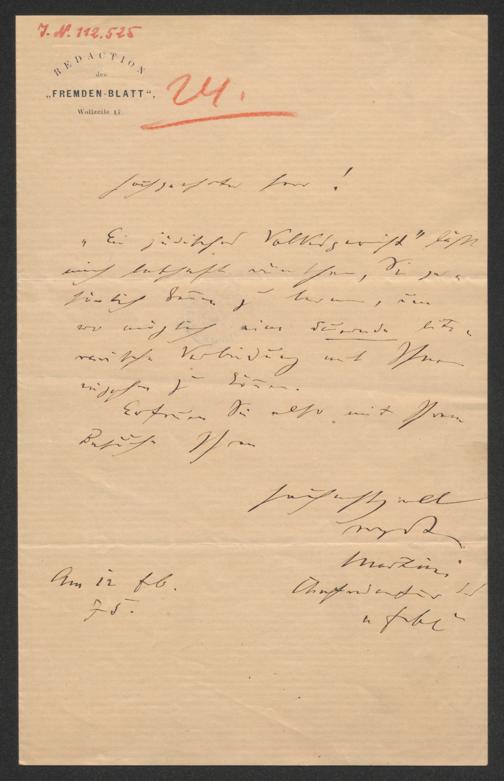 J. N. 112.525
REDACTION
des
„FREMDEN-BLATT“,
Wollzeile 17.
24.
Hochgeehrter Herr!
„Ein jüdisches Volksgericht“ läßt
mich lebhaft wünschen, Sie per-
sönlich kennen zu lernen, um
wo möglich eine dauernde lite-
rarische Verbindung mit Ihnen
eingehen zu können.
Erfreuen Sie also mit Ihrem
Besuche Ihren
hochachtungsvoll
Am 12 Feb.
75.
Chefredakteur des